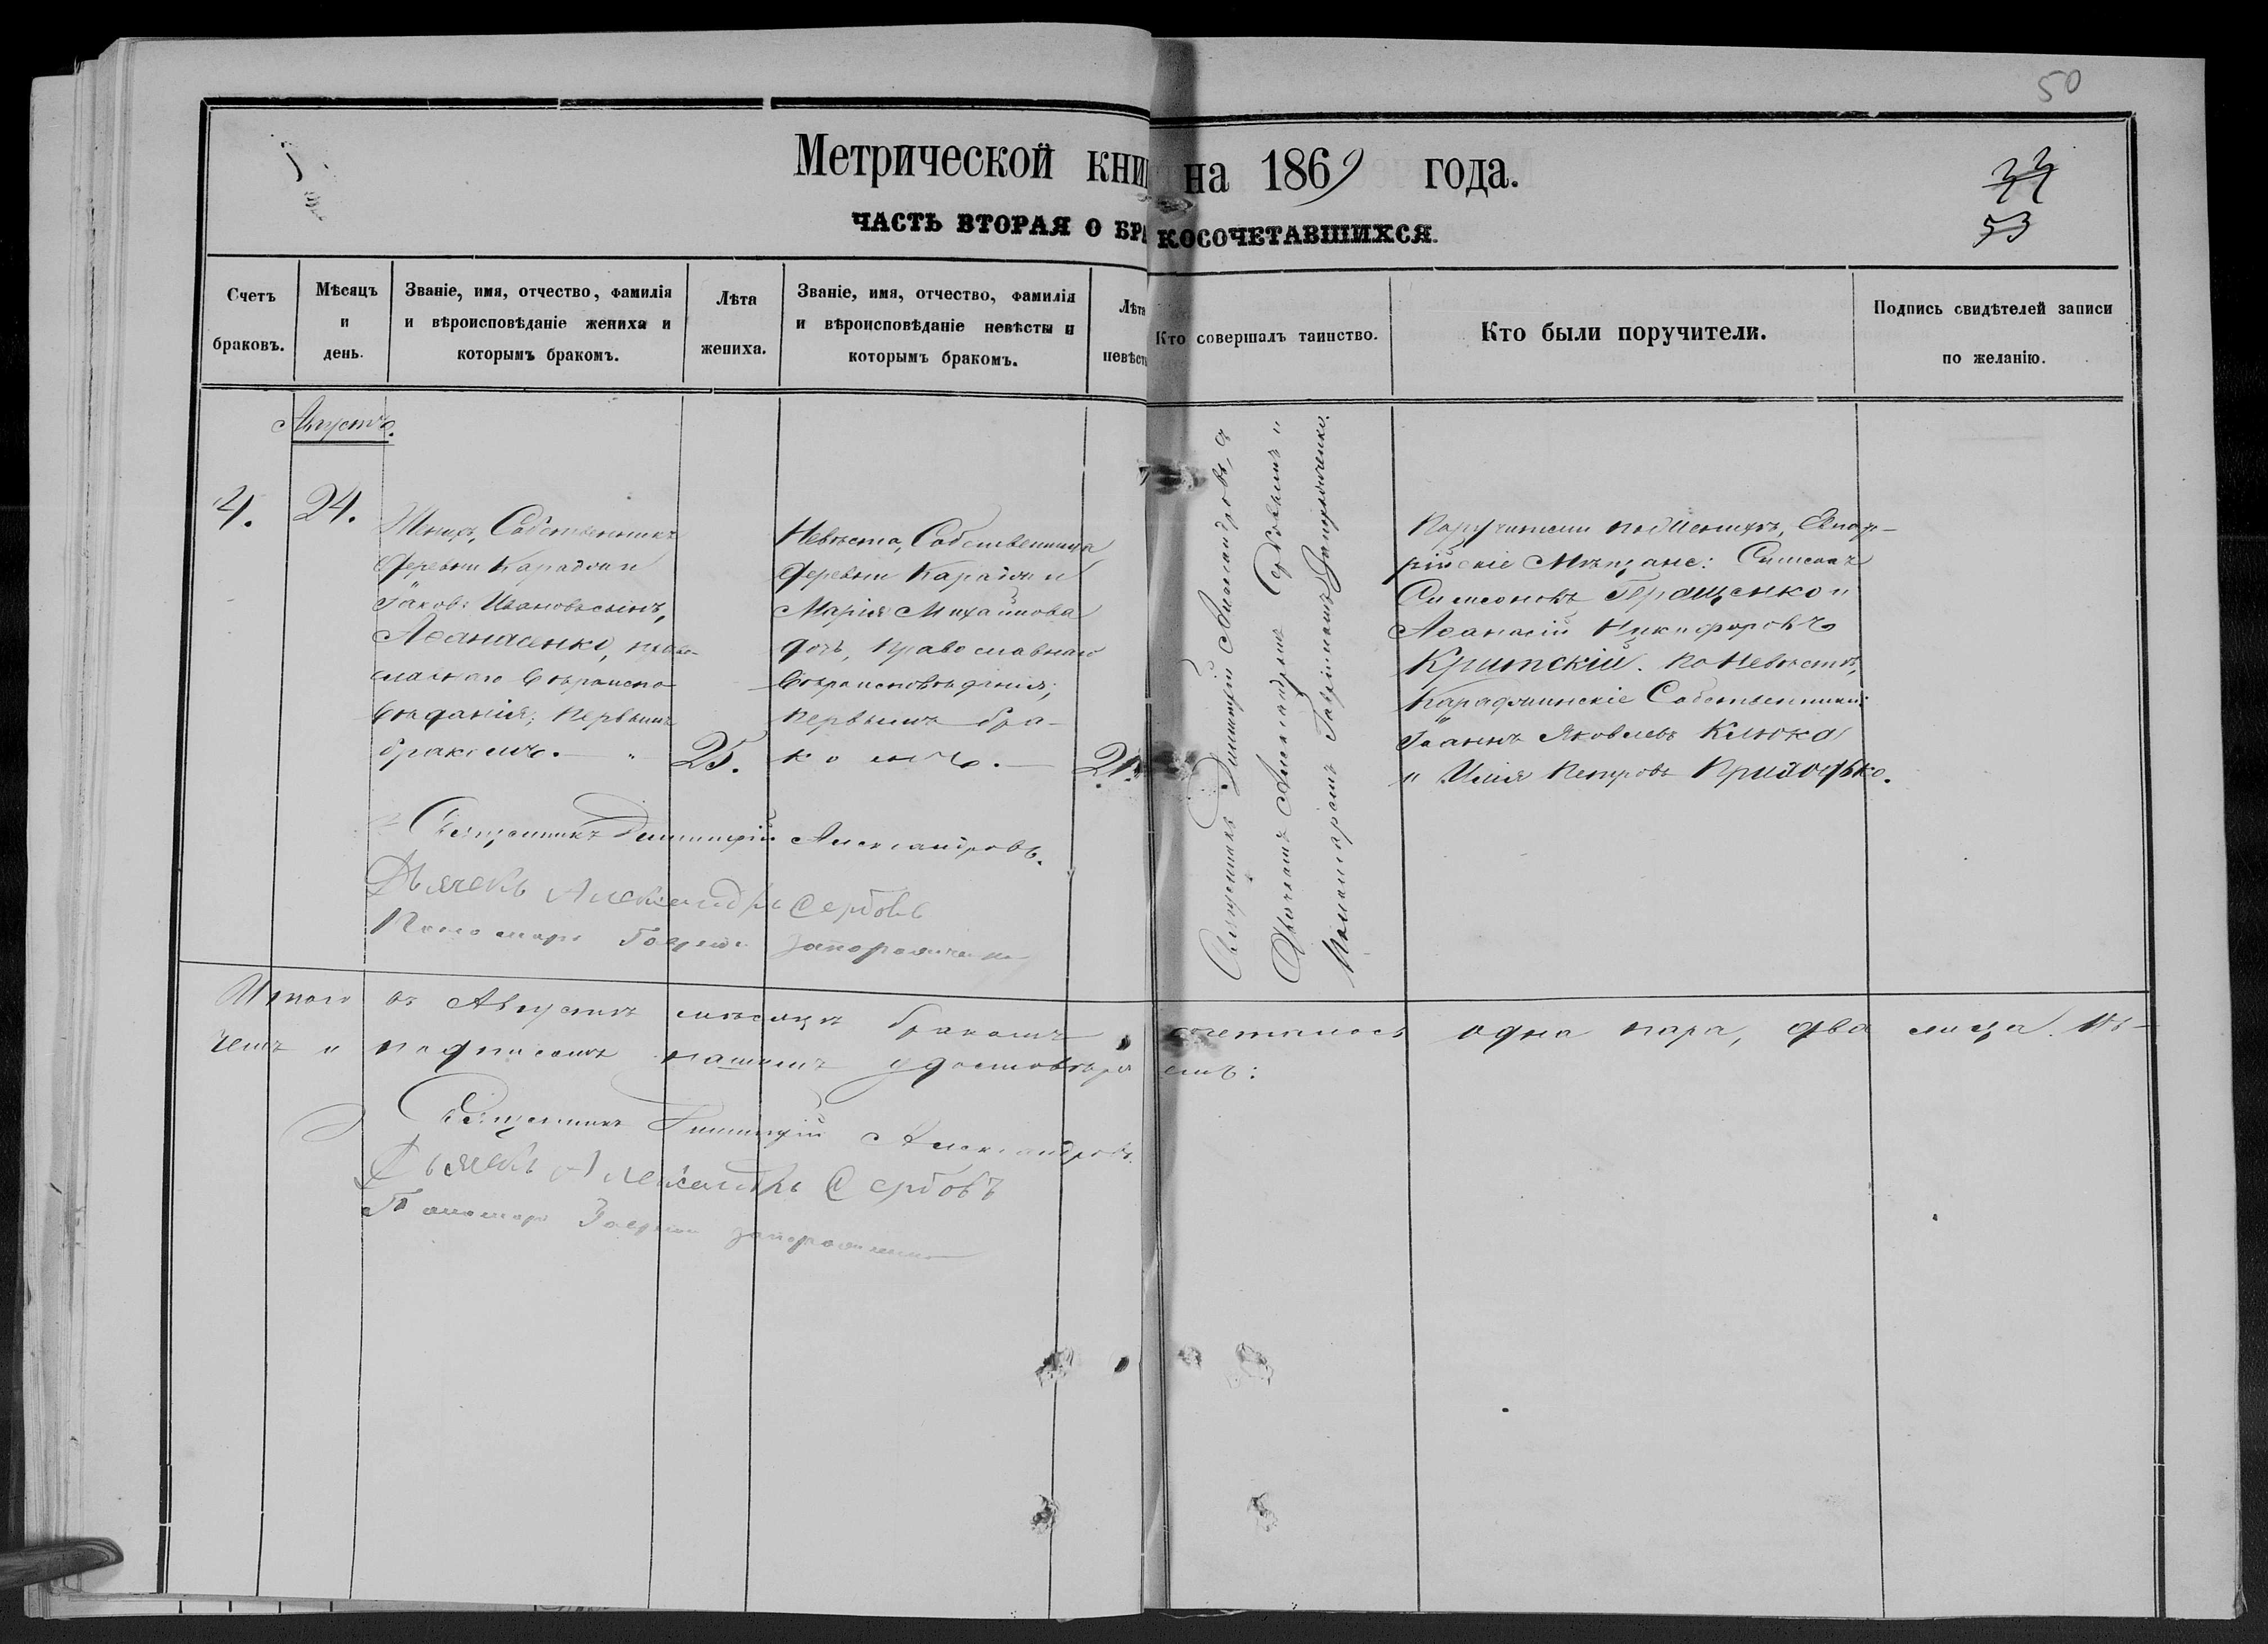 50
Метрической кни на 1869 года.
33
53
ЧАСТЬ ВТОРАЯ О БРАКОСОЧЕТАВШИХСЯ.
Счетъ
браковъ.
Мѣсяцъ
и
день.
Званіе, имя, отчество, фамилія
и вѣроисповѣданіе жениха и
которымъ бракомъ.
Лѣта
жениха.
Званіе, имя, отчество, фамилія
и вѣроисповѣданіе невѣсты и
которымъ бракомъ.
Лѣта
невѣст
Кто совершалъ таинство.
Кто были поручители.
Подпись свидѣтелей записи
по желанію.
Августъ.
4.
24.
Женихъ, Собственникъ
деревни
Іаковъ Ивановъ сынъ,
Аѳанасенко, право-
славнаго вѣроиспо-
вѣданія; первымъ
бракомъ.
25.
Невѣста, Собственница
деревни
Марія Михайлова
дочь, православнаго
вѣроисповѣданія;
первымъ бра-
комъ.
21.
Священникъ Димитрій Александровъ, съ
Дьячкомъ Александромъ Сербовымъ и
Пономаремъ Запорожченко.
Поручители по Женихѣ, Евпато-
рійскіе Мѣщане: Симеонъ
Симеоновъ Геращенко и
Аѳанасій Никифоровъ
Критскій. По Невѣстѣ,
Собственники:
Іоаннъ Яковлевъ Клюка
и Илія Петровъ Придодько.
Священникъ Димитрій Александровъ.
Дьячекъ Александръ Сербовъ
Пономарь Запорожченко
Итого въ Августѣ мѣсяцѣ бракомъ сочеталось одна пара, два лица. Въ
чемъ и подписомъ нашимъ удостовѣряемъ:
Священникъ Димитрій Александровъ.
Дьячекъ Александръ Сербовъ
Пономарь Запорожченко